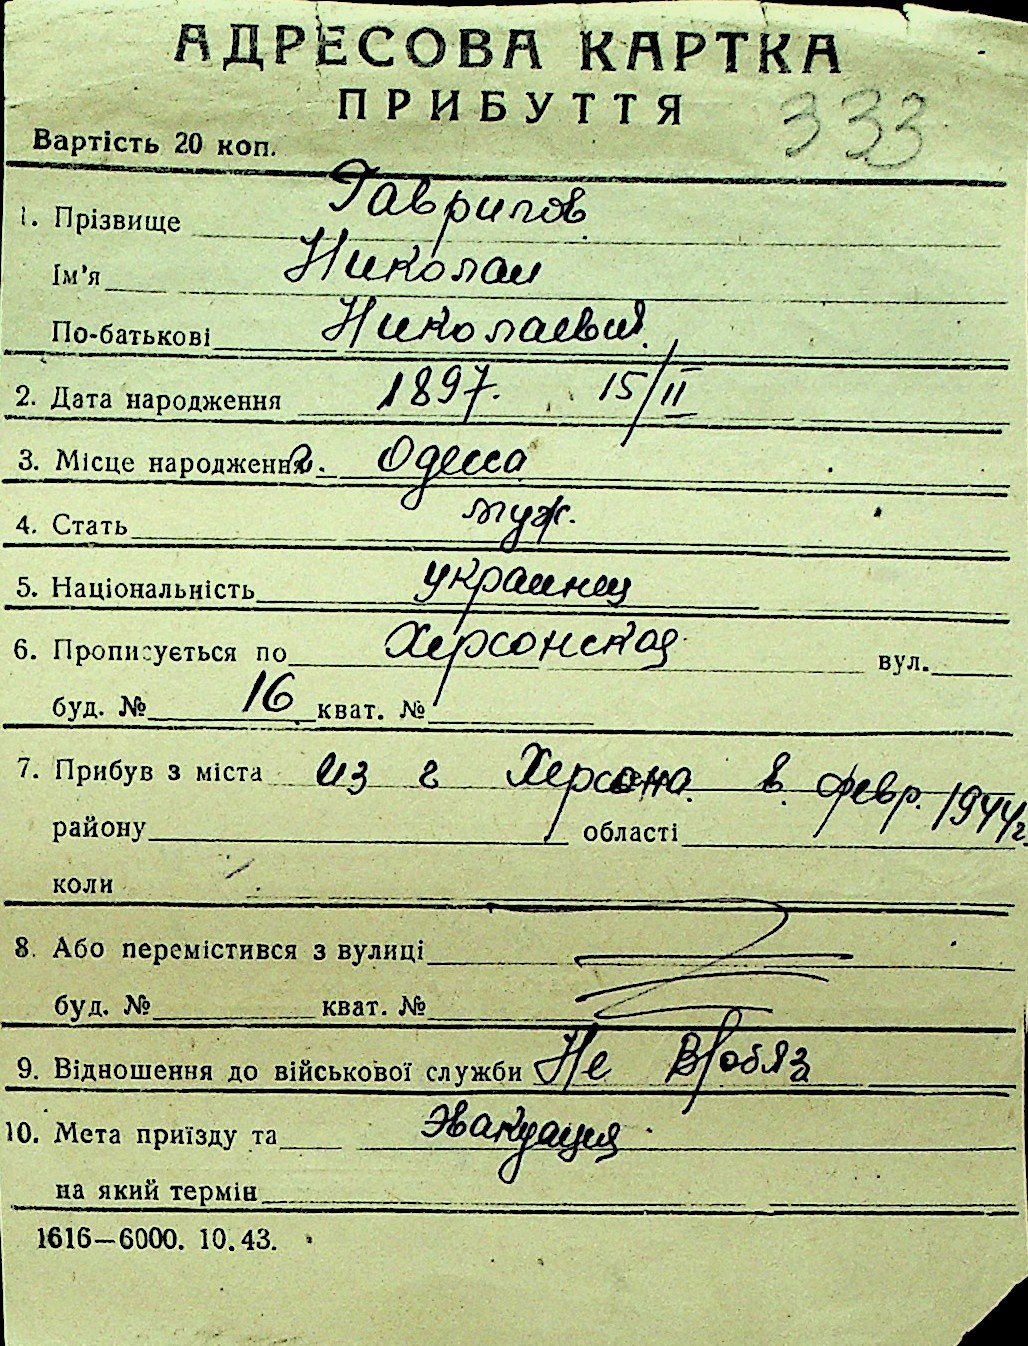 АДРЕСОВА КАРТКА
ПРИБУТТЯ
333
Вартість 20 коп.
1. Прізвище Гаврилов
Ім'я Николай
По-батькові Николаевич
2. Дата народження 1897. 15/II
3. Місце народження г. Одесса
4. Стать муж.
5. Національність украинец
6. Прописується по Херсонская вул.
буд. № 16 кват. №
7. Прибув з міста из г Херсона в февр. 1944г.
району області
коли
8. Або перемістився з вулиці
буд. № кват. №
9. Відношення до військової служби Не в/обяз
10. Мета приїзду та Эвакуация
на який термін
1616—6000. 10.43.